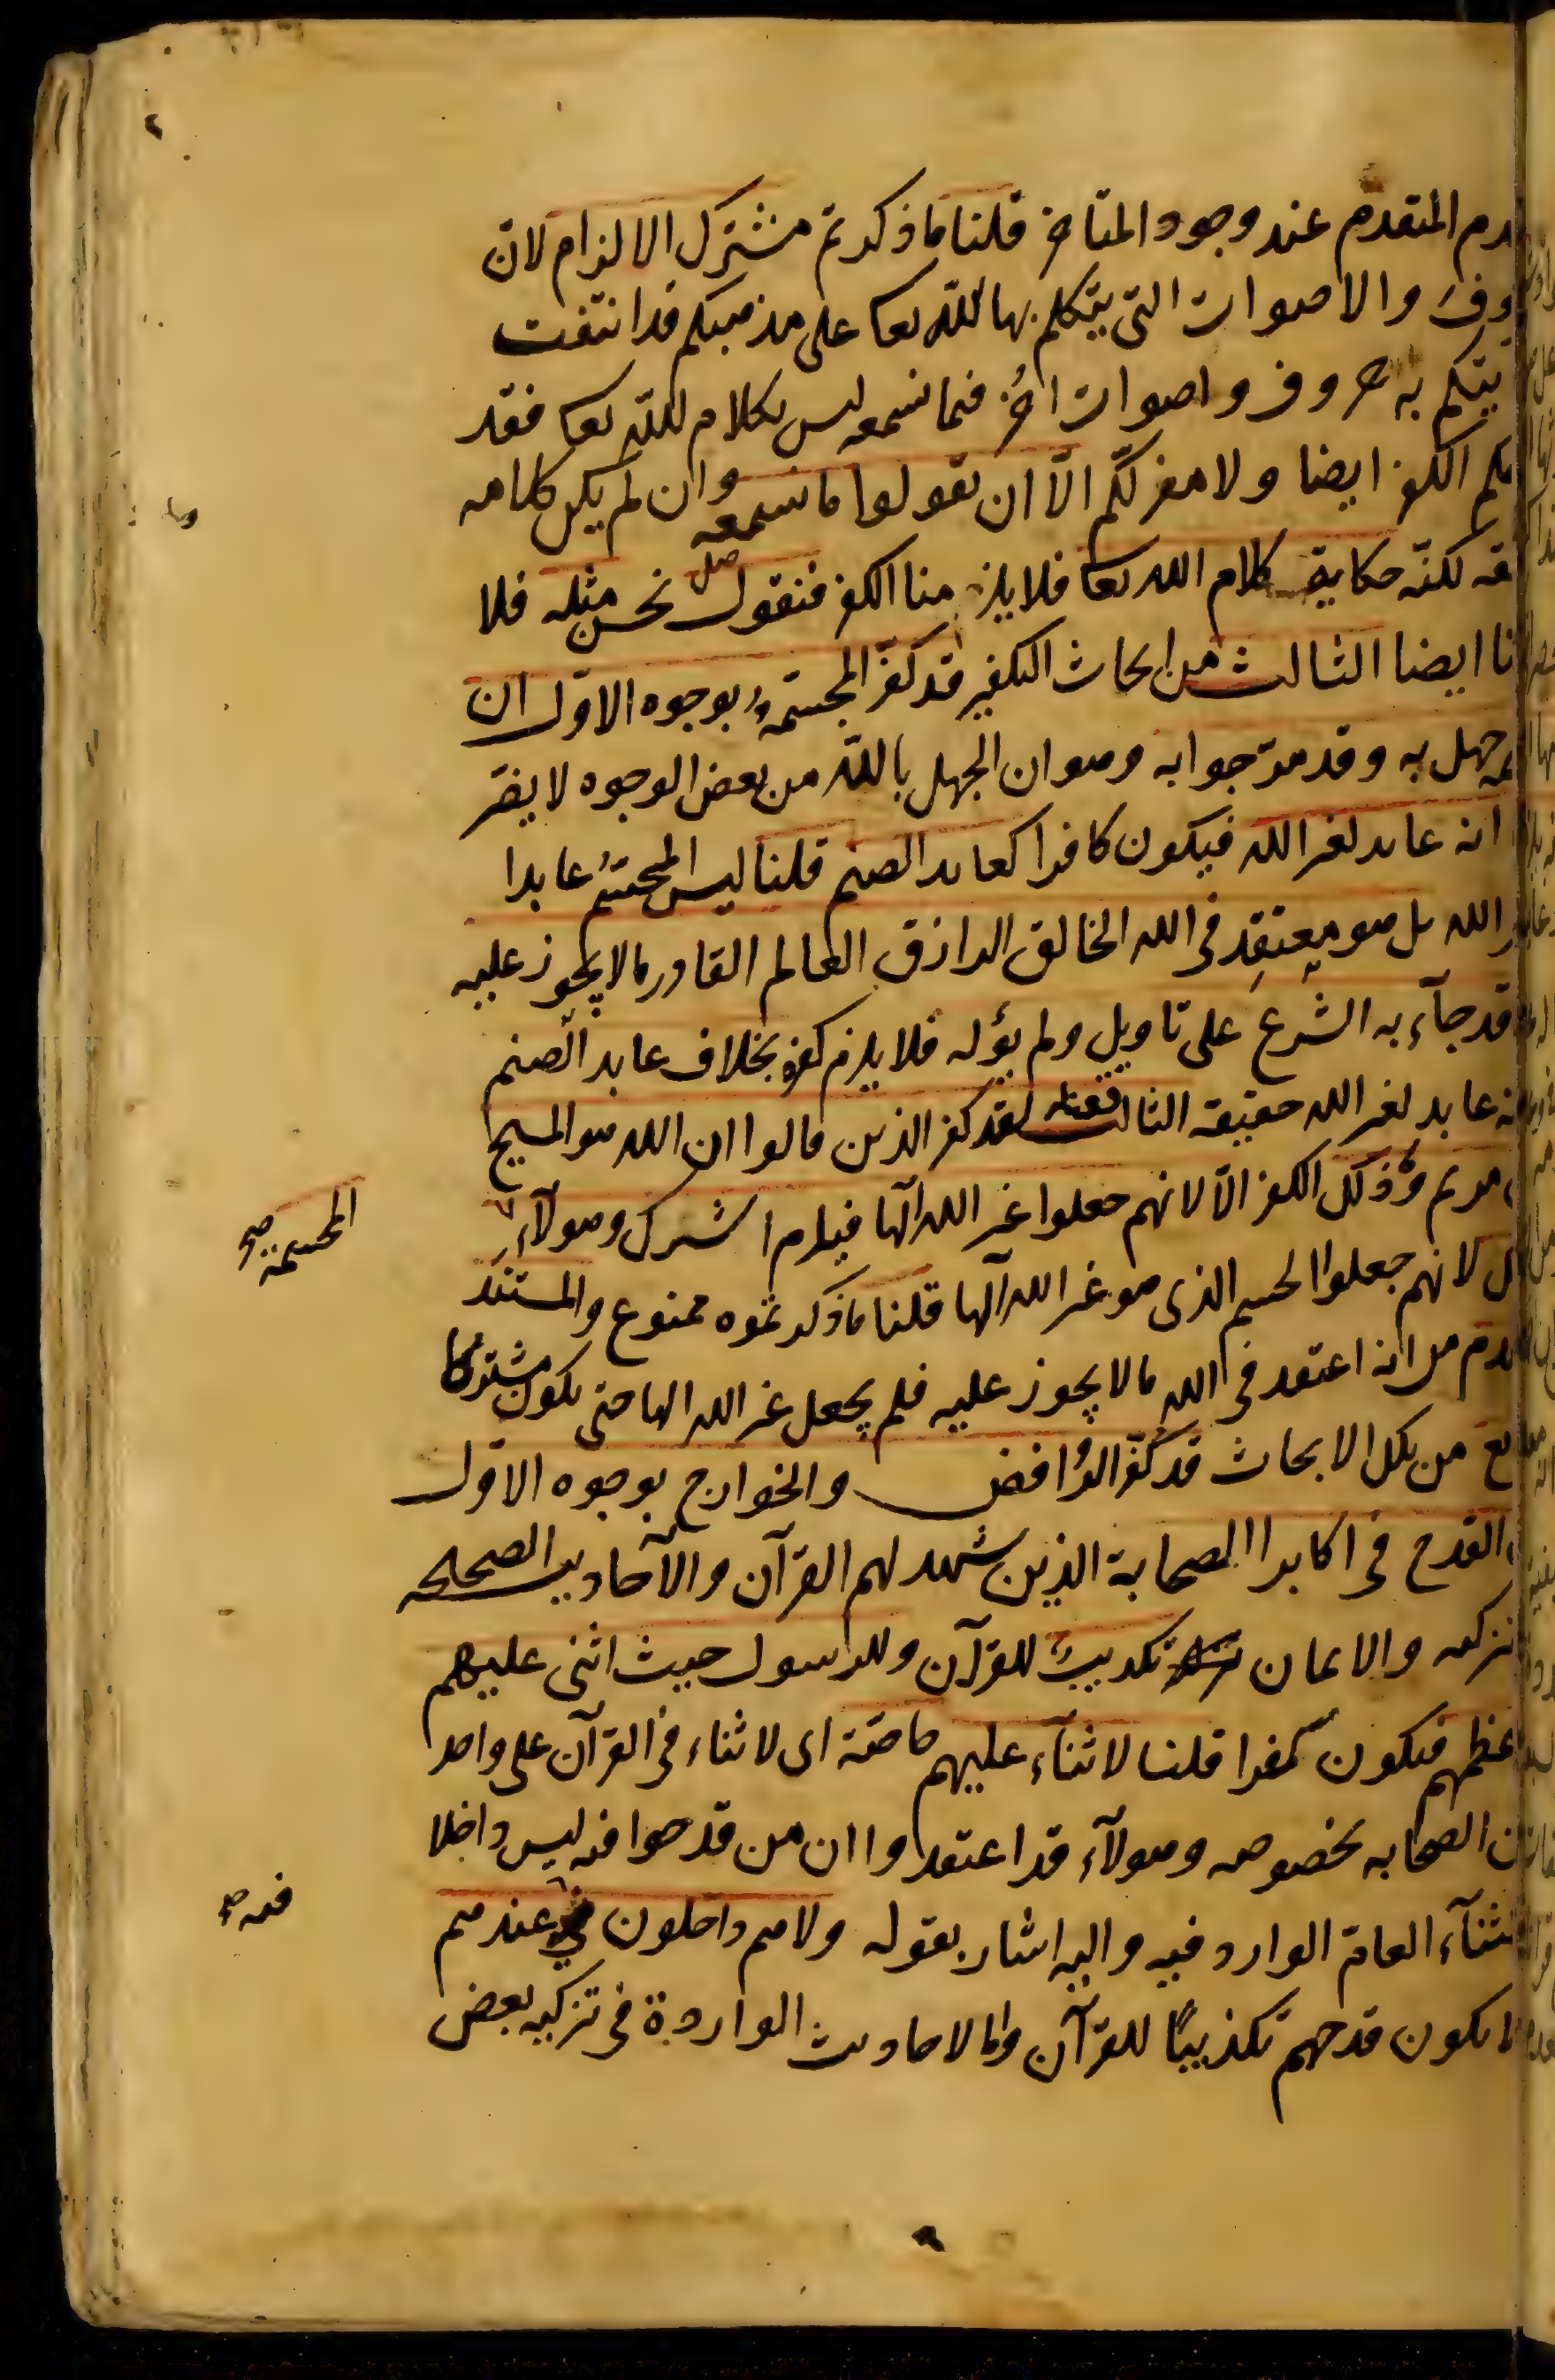 المتقدم عند وجود المتاخر قلنا ما ذكرتم مشترك الالزام لان
والاصوات التي يتكلم بها الله تعا على مذهبكم قد انتفت
يتكلم به حروف واصوات اخر فما نسمعه ليس بكلام الله تعا فقد
الكفر ايضا ولا مفر لكم الّا ان تقولوا ما نسمعه وان لم يكن كلامه
لكنّه حكاية كلام الله تعا فلا يلزمنا الكفر فنقول نحن مثله فلا
ايضا الثالث من ابحاث التكفير قد كفّر المجسّمة بوجوه الاوّل ان
جهل به وقد مرّ جوابه وهو ان الجهل بالله من بعض الوجوه لا يضر
انه عابد لغير الله فيكون كافرا كعابد الصنم قلنا ليس المجسّم عابدا
الله بل هو معتقد في الله الخالق الرازق العالم القادر ما لا يجوز عليه
قد جآء به الشرع على تاويل ولم يؤله فلا يلزم كفره بخلاف عابد الصنم
عابد لغير الله حقيقة الثالث لقد كفر الذين قالوا ان الله هو المسيح
مريم وذلك الكفر الّا لانهم جعلوا غير الله الٓها فيلزم الشرك وهولآء
المجسمة صح
لانهم جعلوا الجسم الذي هو غير الله الٓها قلنا ما ذكرتموه ممنوع والمستند
من انه اعتقد في الله ما لا يجوز عليه فلم يجعل غير الله الها حتى يكون مشتركا
من تلك الابحاث قد كفّر الروافض والخوارج بوجوه الاوّل
القدح في اكابر الصحابة الذين شهد لهم القرآن والآحاديث الصحيحة
والايمان تكذيب للقرآن وللرسول حيث اثنى عليهم
فيكون كفرا قلنا لا ثنآء عليهم خاصّة اي لا ثناء في القرآن على واحد
الصحابه بخصوصه وهولآء قد اعتقدوا ان من قدحوا فيه ليس داخلا
العامّ الوارد فيه واليه اشار بقوله ولا هم داخلون عندهم
فيه صح
يكون قدحهم تكذيبًا للقرآن واما الاحاديث الواردة في تزكيه بعض